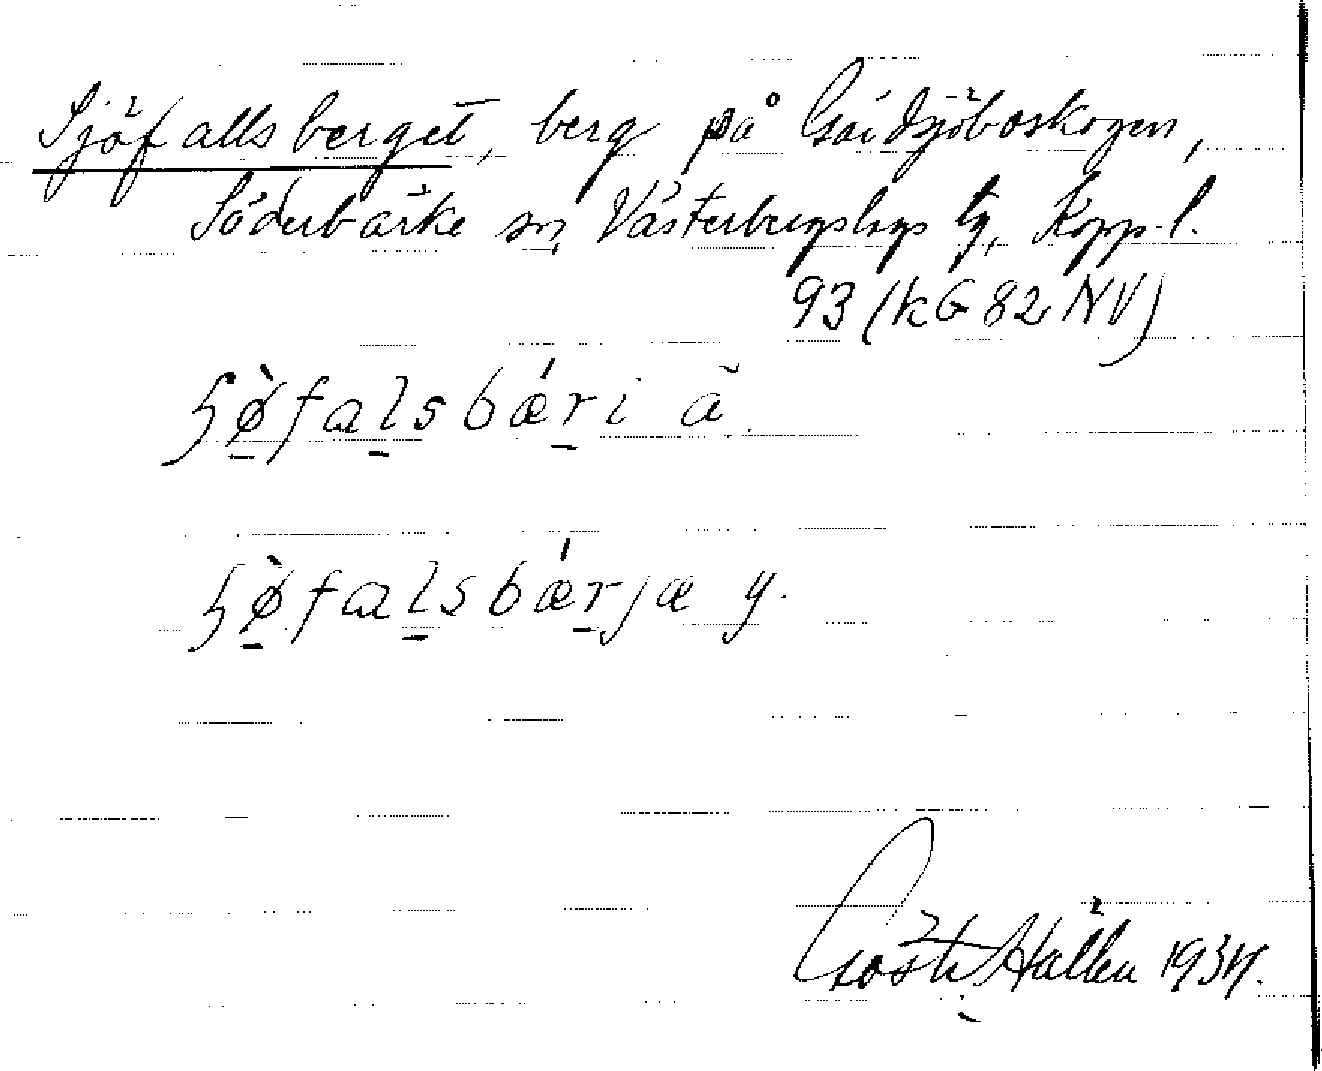 Sjöfallsberget, berg på Gäddsjöboskogen,
Söderbärke sn, Västerbergslags tg, Kopp. l.
93 (kG 82 NV)
ʃø̀falsbǽri ä.
ʃø̀falsbǽrjæ y.
Gösta Hallén 1934.